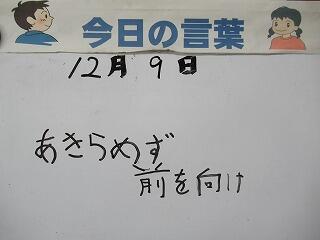 今日の言葉
12月9日
あきらめず
前を向け